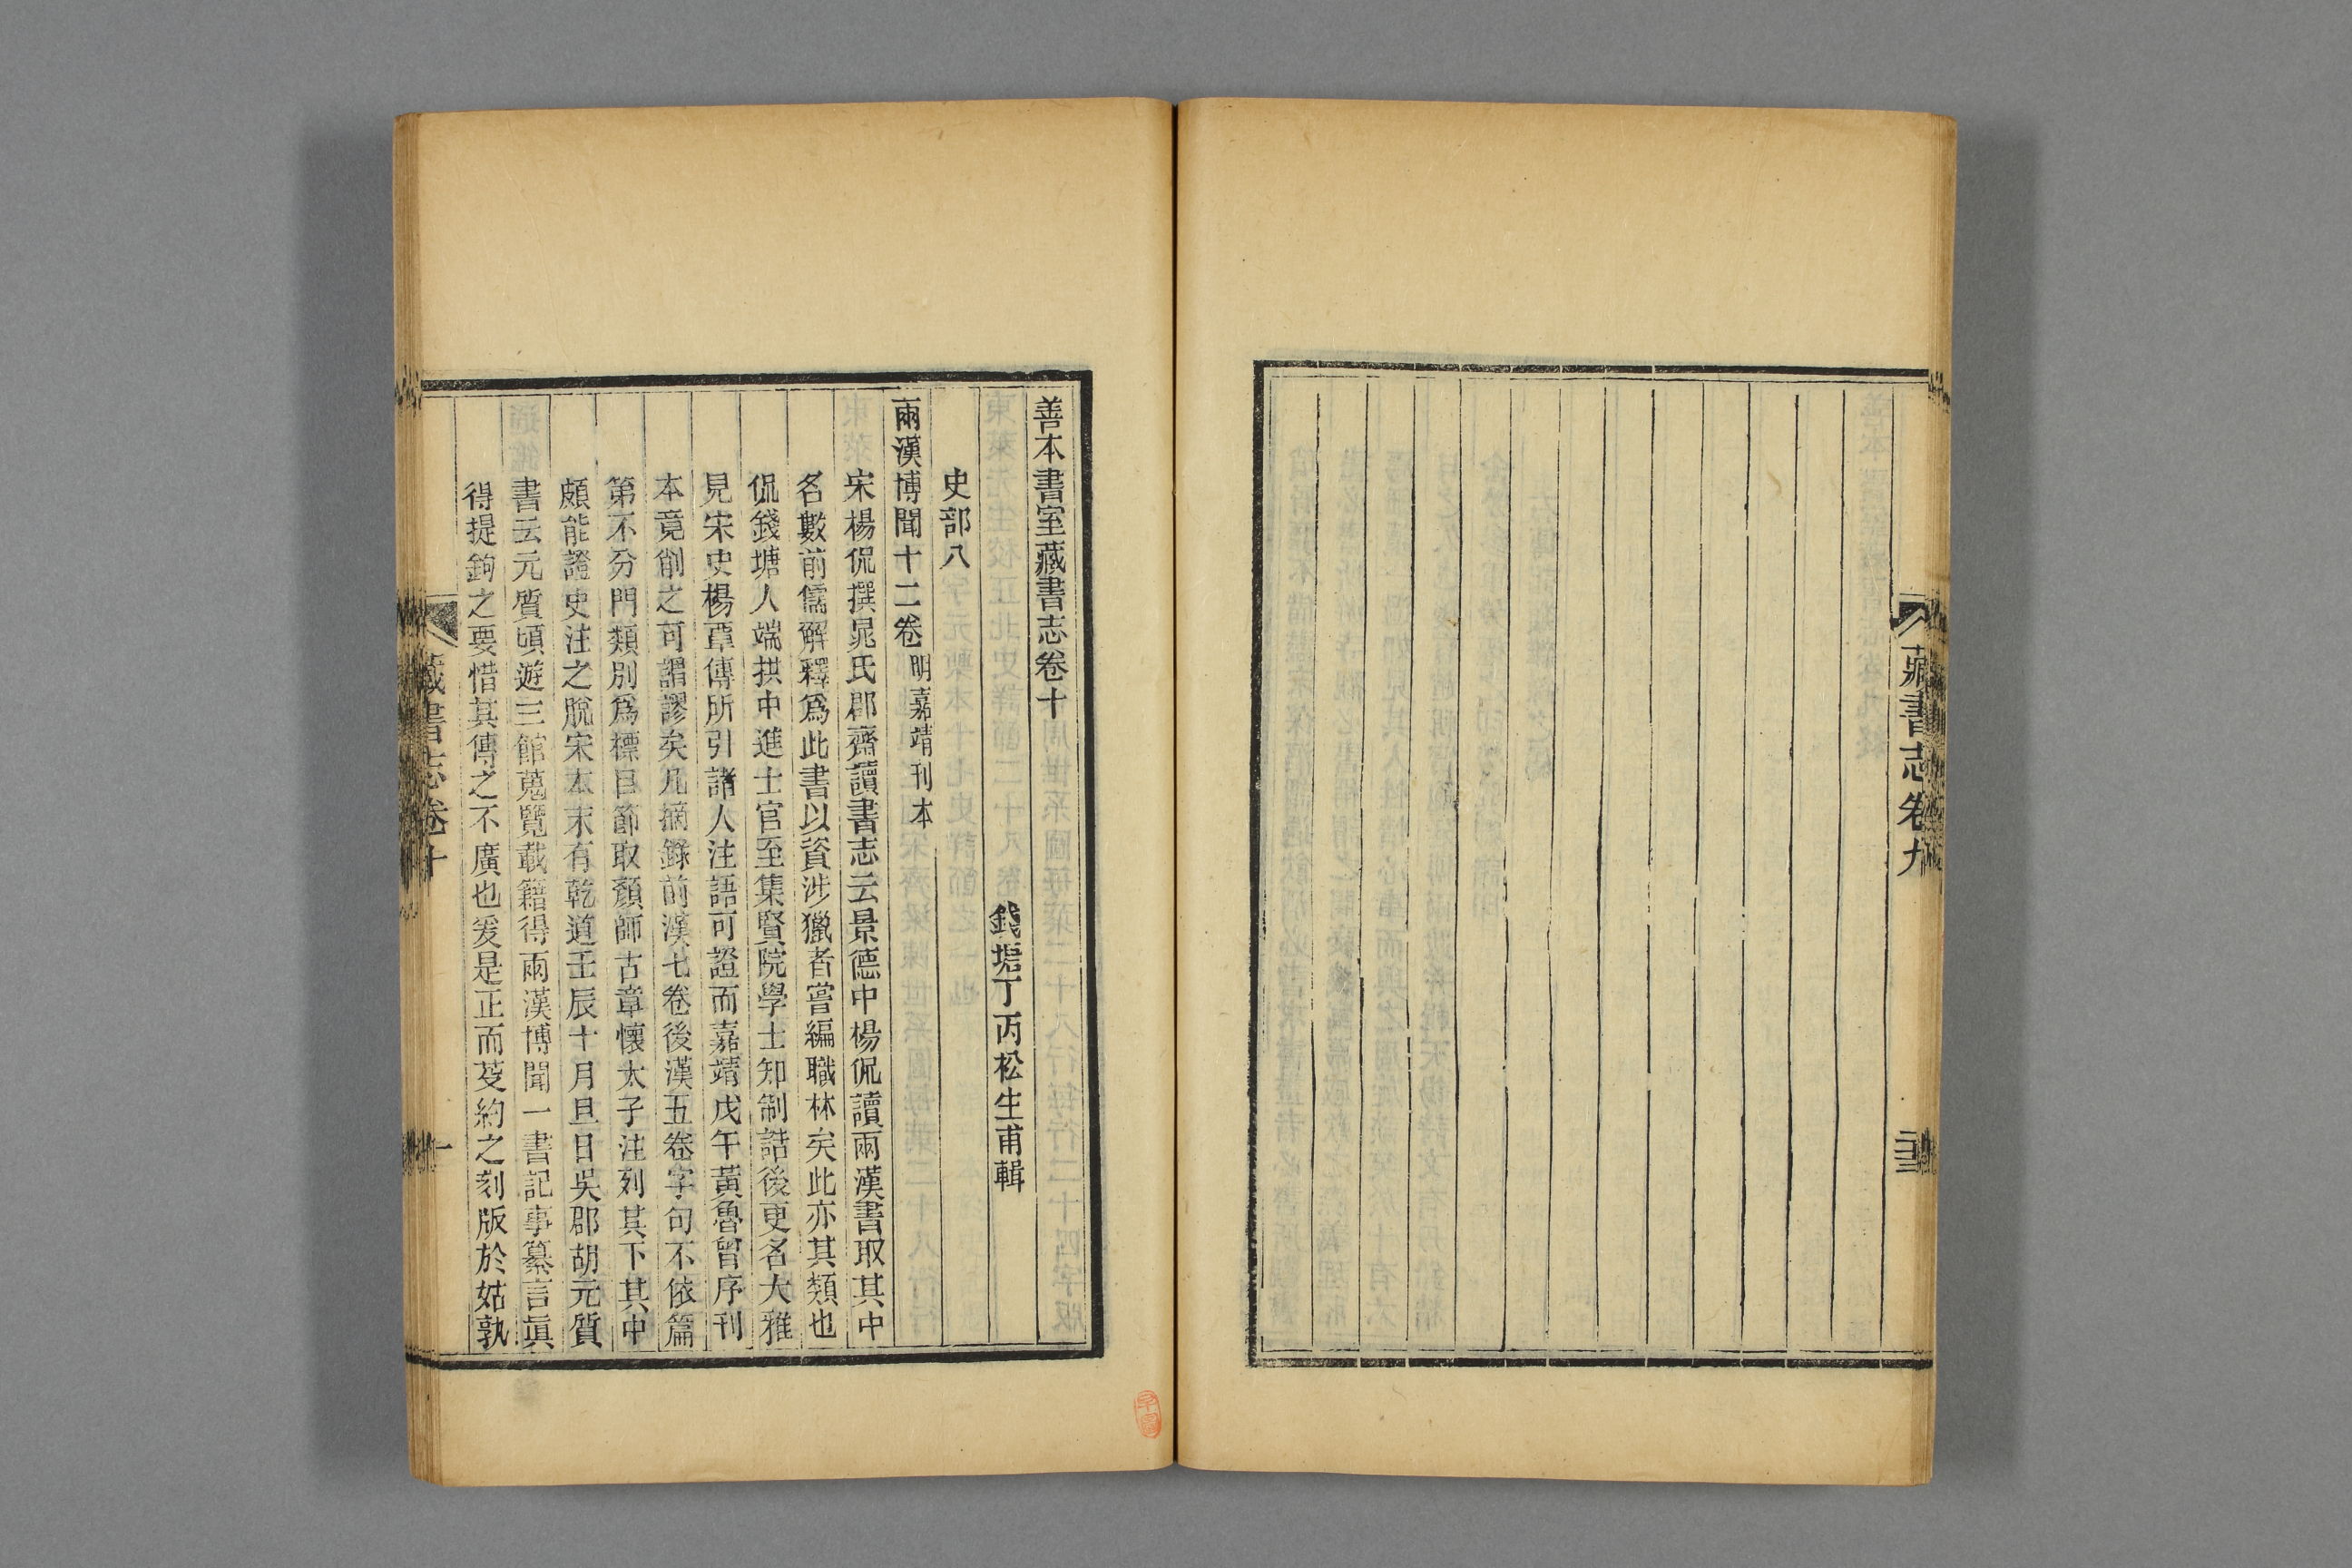 藏書志卷九
善本書室藏書志卷十
錢塘丁丙松生甫輯
史部八
兩漢博聞十二卷 明嘉靖刊本
宋楊侃撰晁氏郡齋讀書志云景德中楊侃讀兩漢書取其中
名數前儒解釋爲此書以資涉獵者嘗編職林矣此亦其類也
侃錢塘人端拱中進士官至集賢院學士知制誥後更名大雅
見宋史楊覃傳所引諸人注語可證而嘉靖戊午黃魯曾序刊
本竟削之可謂謬矣凡摘錄前漢七卷後漢五卷字句不依篇
第不分門類別爲標目節取顏師古章懷太子注列其下其中
頗能證史注之脫宋本末有乾道壬辰十月旦日吳郡胡元質
書云元質頃遊三館蒐覽載籍得兩漢博聞一書記事纂言眞
得提鉤之要惜其傳之不廣也爰是正而芟約之刻版於姑孰
藏書志卷十
一